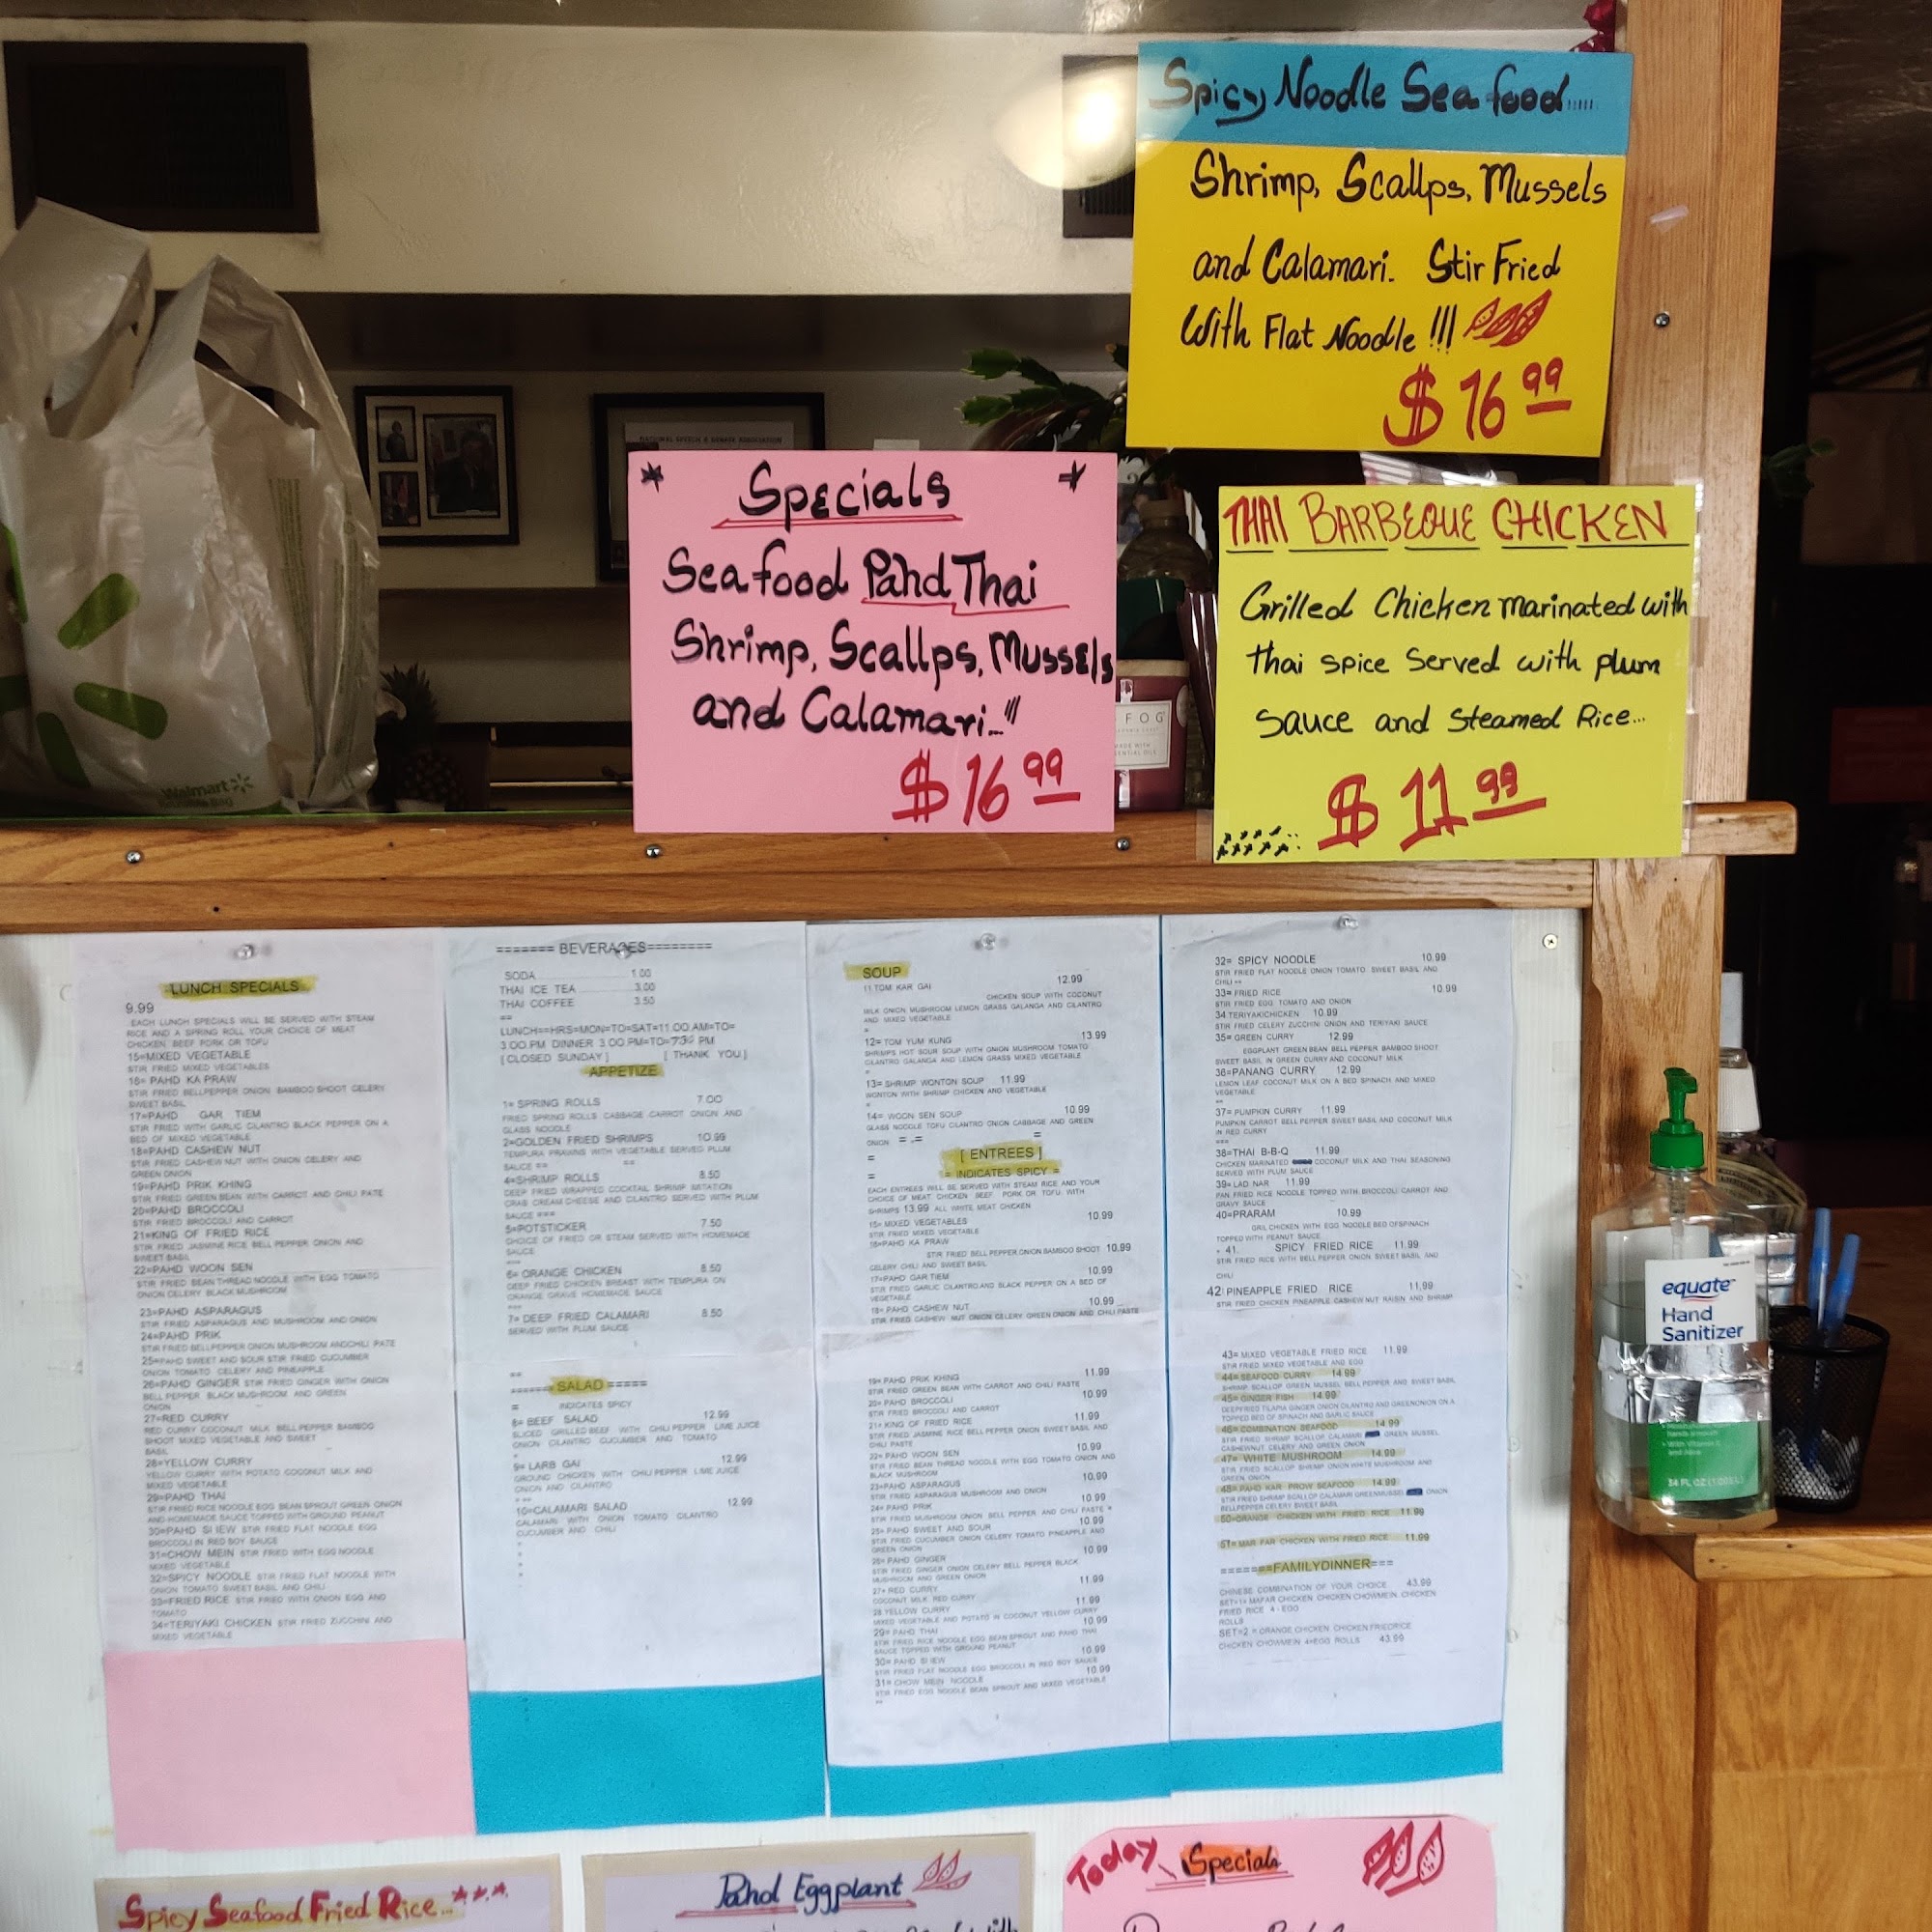 Spicy Noodle Sea food......
Shrimp, Scallps, Mussels
and Calamari. Stir Fried
With Flat Noodle !!!
$16 99
Specials
Sea food Pahd Thai
Shrimp, Scallps, Mussels
and Calamari...!!!
$16 99
THAI BARBEQUE CHICKEN
Grilled Chicken marinated with
thai spice Served with plum
Sauce and Steamed Rice...
$11 99
Walmart
FOG
LUNCH SPECIALS
9.99
EACH LUNCH SPECIALS WILL BE SERVED WITH STEAM
RICE AND A SPRING ROLL YOUR CHOICE OF MEAT
CHICKEN BEEF PORK OR TOFU
15=MIXED VEGETABLE
STIR FRIED MIXED VEGETABLES
16= PAHD KA PRAW
STIR FRIED BELLPEPPER ONION BAMBOO SHOOT CELERY
SWEET BASIL
17=PAHD GAR TIEM
STIR FRIED WITH GARLIC CILANTRO BLACK PEPPER ON A
BED OF MIXED VEGETABLE
18=PAHD CASHEW NUT
STIR FRIED CASHEW NUT WITH ONION CELERY AND
GREEN ONION
19=PAHD PRIK KHING
STIR FRIED GREEN BEAN WITH CARROT AND CHILI PATE
20=PAHD BROCCOLI
STIR FRIED BROCCOLI AND CARROT
21=KING OF FRIED RICE
STIR FRIED JASMINE RICE BELL PEPPER ONION AND
SWEET BASIL
22=PAHD WOON SEN
STIR FRIED BEAN THREAD NOODLE WITH EGG TOMATO
ONION CELERY BLACK MUSHROOM
23=PAHD ASPARAGUS
STIR FRIED ASPARAGUS AND MUSHROOM AND ONION
24=PAHD PRIK
STIR FRIED BELLPEPPER ONION MUSHROOM ANDCHILI PATE
25=PAHD SWEET AND SOUR STIR FRIED CUCUMBER
ONION TOMATO CELERY AND PINEAPPLE
26=PAHD GINGER STIR FRIED GINGER WITH ONION
BELL PEPPER BLACK MUSHROOM AND GREEN
ONION
27=RED CURRY
RED CURRY COCONUT MILK BELL PEPPER BAMBOO
SHOOT MIXED VEGETABLE AND SWEET
BASIL
28=YELLOW CURRY
YELLOW CURRY WITH POTATO COCONUT MILK AND
MIXED VEGETABLE
29=PAHD THAI
STIR FRIED RICE NOODLE EGG BEAN SPROUT GREEN ONION
AND HOMEMADE SAUCE TOPPED WITH GROUND PEANUT
30=PAHD SI IEW STIR FRIED FLAT NOODLE EGG
BROCCOLI IN RED BOY SAUCE
31=CHOW MEIN STIR FRIED WITH EGG NOODLE
MIXED VEGETABLE
32=SPICY NOODLE STIR FRIED FLAT NOODLE WITH
ONION TOMATO SWEET BASIL AND CHILI
33=FRIED RICE STIR FRIED WITH ONION EGG AND
TOMATO
34=TERIYAKI CHICKEN STIR FRIED ZUCCHINI AND
MIXED VEGETABLE
======= BEVERAGES========
SODA.......................1.00
THAI ICE TEA ............. 3.00
THAI COFFEE 3.50
==
LUNCH==HRS=MON=TO=SAT=11.00.AM=TO=
3.00.PM DINNER 3.00.PM=TO=7:30 PM
[ CLOSED SUNDAY ] [ THANK YOU ]
APPETIZE
1= SPRING ROLLS 7.00
FRIED SPRING ROLLS CABBAGE CARROT ONION AND
GLASS NOODLE
2=GOLDEN FRIED SHRIMPS 10.99
TEMPURA PRAWNS WITH VEGETABLE SERVED PLUM
SAUCE == ==
4=SHRIMP ROLLS 8.50
DEEP FRIED WRAPPED COCKTAIL SHRIMP IMITATION
CRAB CREAM CHEESE AND CILANTRO SERVED WITH PLUM
SAUCE ===
5=POTSTICKER 7.50
CHOICE OF FRIED OR STEAM SERVED WITH HOMEMADE
SAUCE
6= ORANGE CHICKEN 8.50
DEEP FRIED CHICKEN BREAST WITH TEMPURA ON
ORANGE GRAVE HOMEMADE SAUCE
7= DEEP FRIED CALAMARI 8.50
SERVED WITH PLUM SAUCE
====== SALAD =====
= INDICATES SPICY
8= BEEF SALAD 12.99
SLICED GRILLED BEEF WITH CHILI PEPPER LIME JUICE
ONION CILANTRO CUCUMBER AND TOMATO
9= LARB GAI 12.99
GROUND CHICKEN WITH CHILI PEPPER LIME JUICE
ONION AND CILANTRO
10=CALAMARI SALAD 12.99
CALAMARI WITH ONION TOMATO CILANTRO
CUCUMBER AND CHILI
SOUP
11.TOM KAR GAI 12.99
CHICKEN SOUP WITH COCONUT
MILK ONION MUSHROOM LEMON GRASS GALANGA AND CILANTRO
AND MIXED VEGETABLE
12= TOM YUM KUNG 13.99
SHRIMPS HOT SOUR SOUP WITH ONION MUSHROOM TOMATO
CILANTRO GALANGA AND LEMON GRASS MIXED VEGETABLE
13= SHRIMP WONTON SOUP 11.99
WONTON WITH SHRIMP CHICKEN AND VEGETABLE
14= WOON SEN SOUP 10.99
GLASS NOODLE TOFU CILANTRO ONION CABBAGE AND GREEN
ONION
[ ENTREES ]
= INDICATES SPICY =
EACH ENTREES WILL BE SERVED WITH STEAM RICE AND YOUR
CHOICE OF MEAT CHICKEN BEEF PORK OR TOFU WITH
SHRIMPS 13.99 ALL WHITE MEAT CHICKEN
15= MIXED VEGETABLES 10.99
STIR FRIED MIXED VEGETABLE
16=PAHD KA PRAW
STIR FRIED BELL PEPPER ONION BAMBOO SHOOT 10.99
CELERY CHILI AND SWEET BASIL
17=PAHD GAR TIEM 10.99
STIR FRIED GARLIC CILANTRO AND BLACK PEPPER ON A BED OF
VEGETABLE
18= PAHD CASHEW NUT 10.99
STIR FRIED CASHEW NUT ONION CELERY GREEN ONION AND CHILI PASTE
19= PAHD PRIK KHING 11.99
STIR FRIED GREEN BEAN WITH CARROT AND CHILI PASTE
20= PAHD BROCCOLI 10.99
STIR FRIED BROCCOLI AND CARROT
21= KING OF FRIED RICE 11.99
STIR FRIED JASMINE RICE BELL PEPPER ONION SWEET BASIL AND
CHILI PASTE
22= PAHD WOON SEN 10.99
STIR FRIED BEAN THREAD NOODLE WITH EGG TOMATO ONION AND
BLACK MUSHROOM
23=PAHD ASPARAGUS 10.99
STIR FRIED ASPARAGUS MUSHROOM AND ONION
24= PAHD PRIK 10.99
STIR FRIED MUSHROOM ONION BELL PEPPER AND CHILI PASTE
25= PAHD SWEET AND SOUR 10.99
STIR FRIED CUCUMBER ONION CELERY TOMATO PINEAPPLE AND
GREEN ONION
26= PAHD GINGER 10.99
STIR FRIED GINGER ONION CELERY BELL PEPPER BLACK
MUSHROOM AND GREEN ONION
27= RED CURRY 11.99
COCONUT MILK RED CURRY
28.YELLOW CURRY 11.99
MIXED VEGETABLE AND POTATO IN COCONUT YELLOW CURRY
29= PAHD THAI 10.99
STIR FRIED RICE NOODLE EGG BEAN SPROUT AND PAHD THAI
SAUCE TOPPED WITH GROUND PEANUT
30= PAHD SI IEW 10.99
STIR FRIED FLAT NOODLE EGG BROCCOLI IN RED BOY SAUCE
31= CHOW MEIN NOODLE 10.99
STIR FRIED EGG NOODLE BEAN SPROUT AND MIXED VEGETABLE
32= SPICY NOODLE 10.99
STIR FRIED FLAT NOODLE ONION TOMATO SWEET BASIL AND
CHILI ==
33= FRIED RICE 10.99
STIR FRIED EGG TOMATO AND ONION
34.TERIYAKICHICKEN 10.99
STIR FRIED CELERY ZUCCHINI ONION AND TERIYAKI SAUCE
35= GREEN CURRY 12.99
EGGPLANT GREEN BEAN BELL PEPPER BAMBOO SHOOT
SWEET BASIL IN GREEN CURRY AND COCONUT MILK
36=PANANG CURRY 12.99
LEMON LEAF COCONUT MILK ON A BED SPINACH AND MIXED
VEGETABLE
37= PUMPKIN CURRY 11.99
PUMPKIN CARROT BELL PEPPER SWEET BASIL AND COCONUT MILK
IN RED CURRY
===
38=THAI B-B-Q 11.99
CHICKEN MARINATED COCONUT MILK AND THAI SEASONING
SERVED WITH PLUM SAUCE
39= LAD NAR 11.99
PAN FRIED RICE NOODLE TOPPED WITH BROCCOLI CARROT AND
GRAVY SAUCE
40=PRARAM 10.99
GRIL CHICKEN WITH EGG NOODLE BED OFSPINACH
TOPPED WITH PEANUT SAUCE
41. SPICY FRIED RICE 11.99
STIR FRIED RICE WITH BELL PEPPER ONION SWEET BASIL AND
CHILI
42 PINEAPPLE FRIED RICE 11.99
STIR FRIED CHICKEN PINEAPPLE CASHEW NUT RAISIN AND SHRIMP
43= MIXED VEGETABLE FRIED RICE 11.99
STIR FRIED MIXED VEGETABLE AND EGG
44= SEAFOOD CURRY 14.99
SHRIMP SCALLOP GREEN MUSSEL BELL PEPPER AND SWEET BASIL
45= GINGER FISH 14.99
DEEPFRIED TILAPIA GINGER ONION CILANTRO AND GREENONION ON A
TOPPED BED OF SPINACH AND GARLIC SAUCE
46= COMBINATION SEAFOOD 14.99
STIR FRIED SHRIMP SCALLOP CALAMARI GREEN MUSSEL
CASHEWNUT CELERY AND GREEN ONION
47= WHITE MUSHROOM 14.99
STIR FRIED SCALLOP SHRIMP ONION WHITE MUSHROOM AND
GREEN ONION
48= PAHD KAR PROW SEAFOOD 14.99
STIR FRIED SHRIMP SCALLOP CALAMARI GREENMUSSEL ONION
BELLPEPPER CELERY SWEET BASIL
50=ORANGE CHICKEN WITH FRIED RICE 11.99
51= MAR FAR CHICKEN WITH FRIED RICE 11.99
=======FAMILYDINNER===
CHINESE COMBINATION OF YOUR CHOICE 43.99
SET=1= MAFAR CHICKEN CHICKEN CHOWMEIN CHICKEN
FRIED RICE 4 - EGG
ROLLS
SET=2 = ORANGE CHICKEN CHICKEN FRIEDRICE
CHICKEN CHOWMEIN 4=EGG ROLLS 43.99
equate
Hand
Sanitizer
34 FL OZ (1.00
Spicy Seafood Fried Rice...
Pahd Eggplant
Today Specials